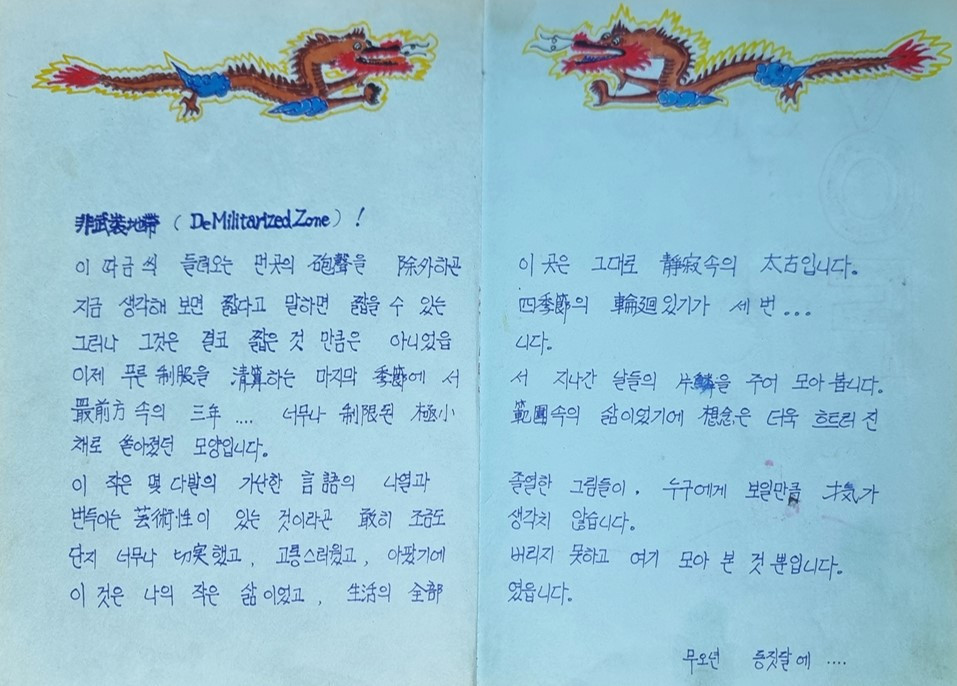 非武裝地帶 ( DeMilitarized Zone ) !
이 따금 씩 들려오는 먼곳의 砲聲을 除外하곤
이 곳은 그대로 靜寂속의 太古입니다.
지금 생각해 보면 짧다고 말하면 짧을 수 있는
四季節의 輪廻있기가 세 번...
그러나 그것은 결코 짧은 것 만큼은 아니었읍
니다.
이제 푸른 制服을 清算하는 마지막 季節에 서
서 지나간 날들의 片鱗을 주어 모아 봅니다.
最前方 속의 三年 .... 너무나 制限된 極小
範圍속의 삶이었기에 想念은 더욱 흐트러 진
채로 쏟아졌던 모양입니다.
이 작은 몇 다발의 가난한 言語의 나열과
졸열한 그림들이, 누구에게 보일만큼 才気가
번득이는 芸術性이 있는 것이라곤 敢히 조금도
생각치 않습니다.
단지 너무나 切実했고, 고통스러웠고, 아팠기에
버리지 못하고 여기 모아 본 것 뿐입니다.
이 것은 나의 작은 삶이었고, 生活의 全部
였읍니다.
무오년 동짓달에 ....